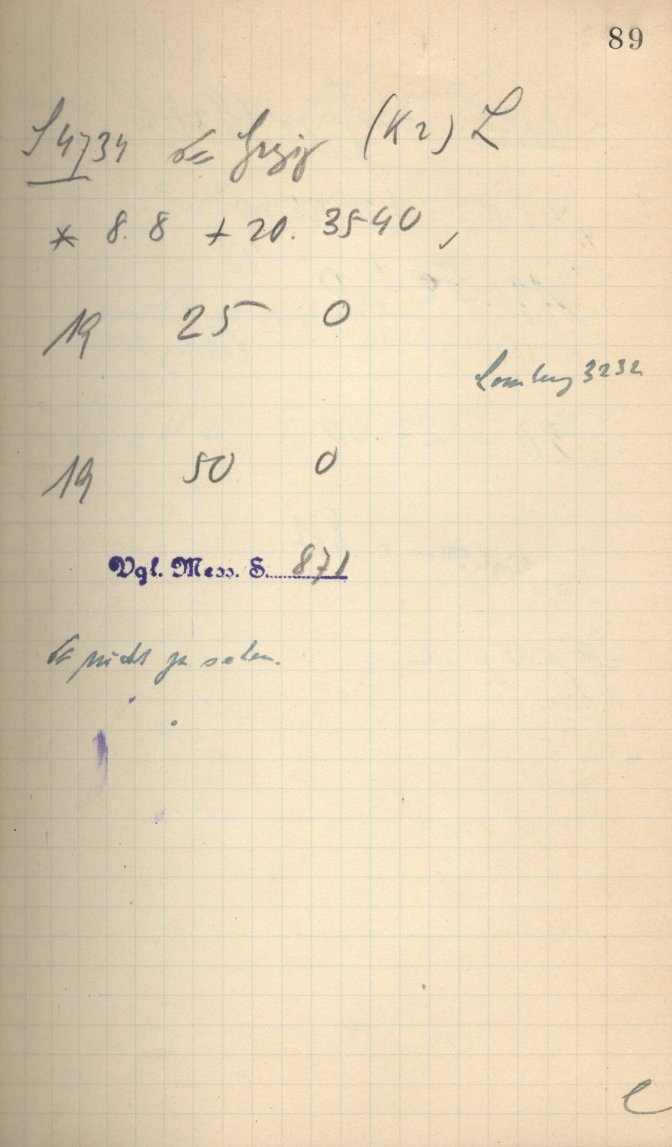 89
S 4734 (K2) L
* 8.8 + 20. 3540,
19 25 0
3232
19 50 0
Vgl. Mess. S. 871
nicht zu sehen.
e